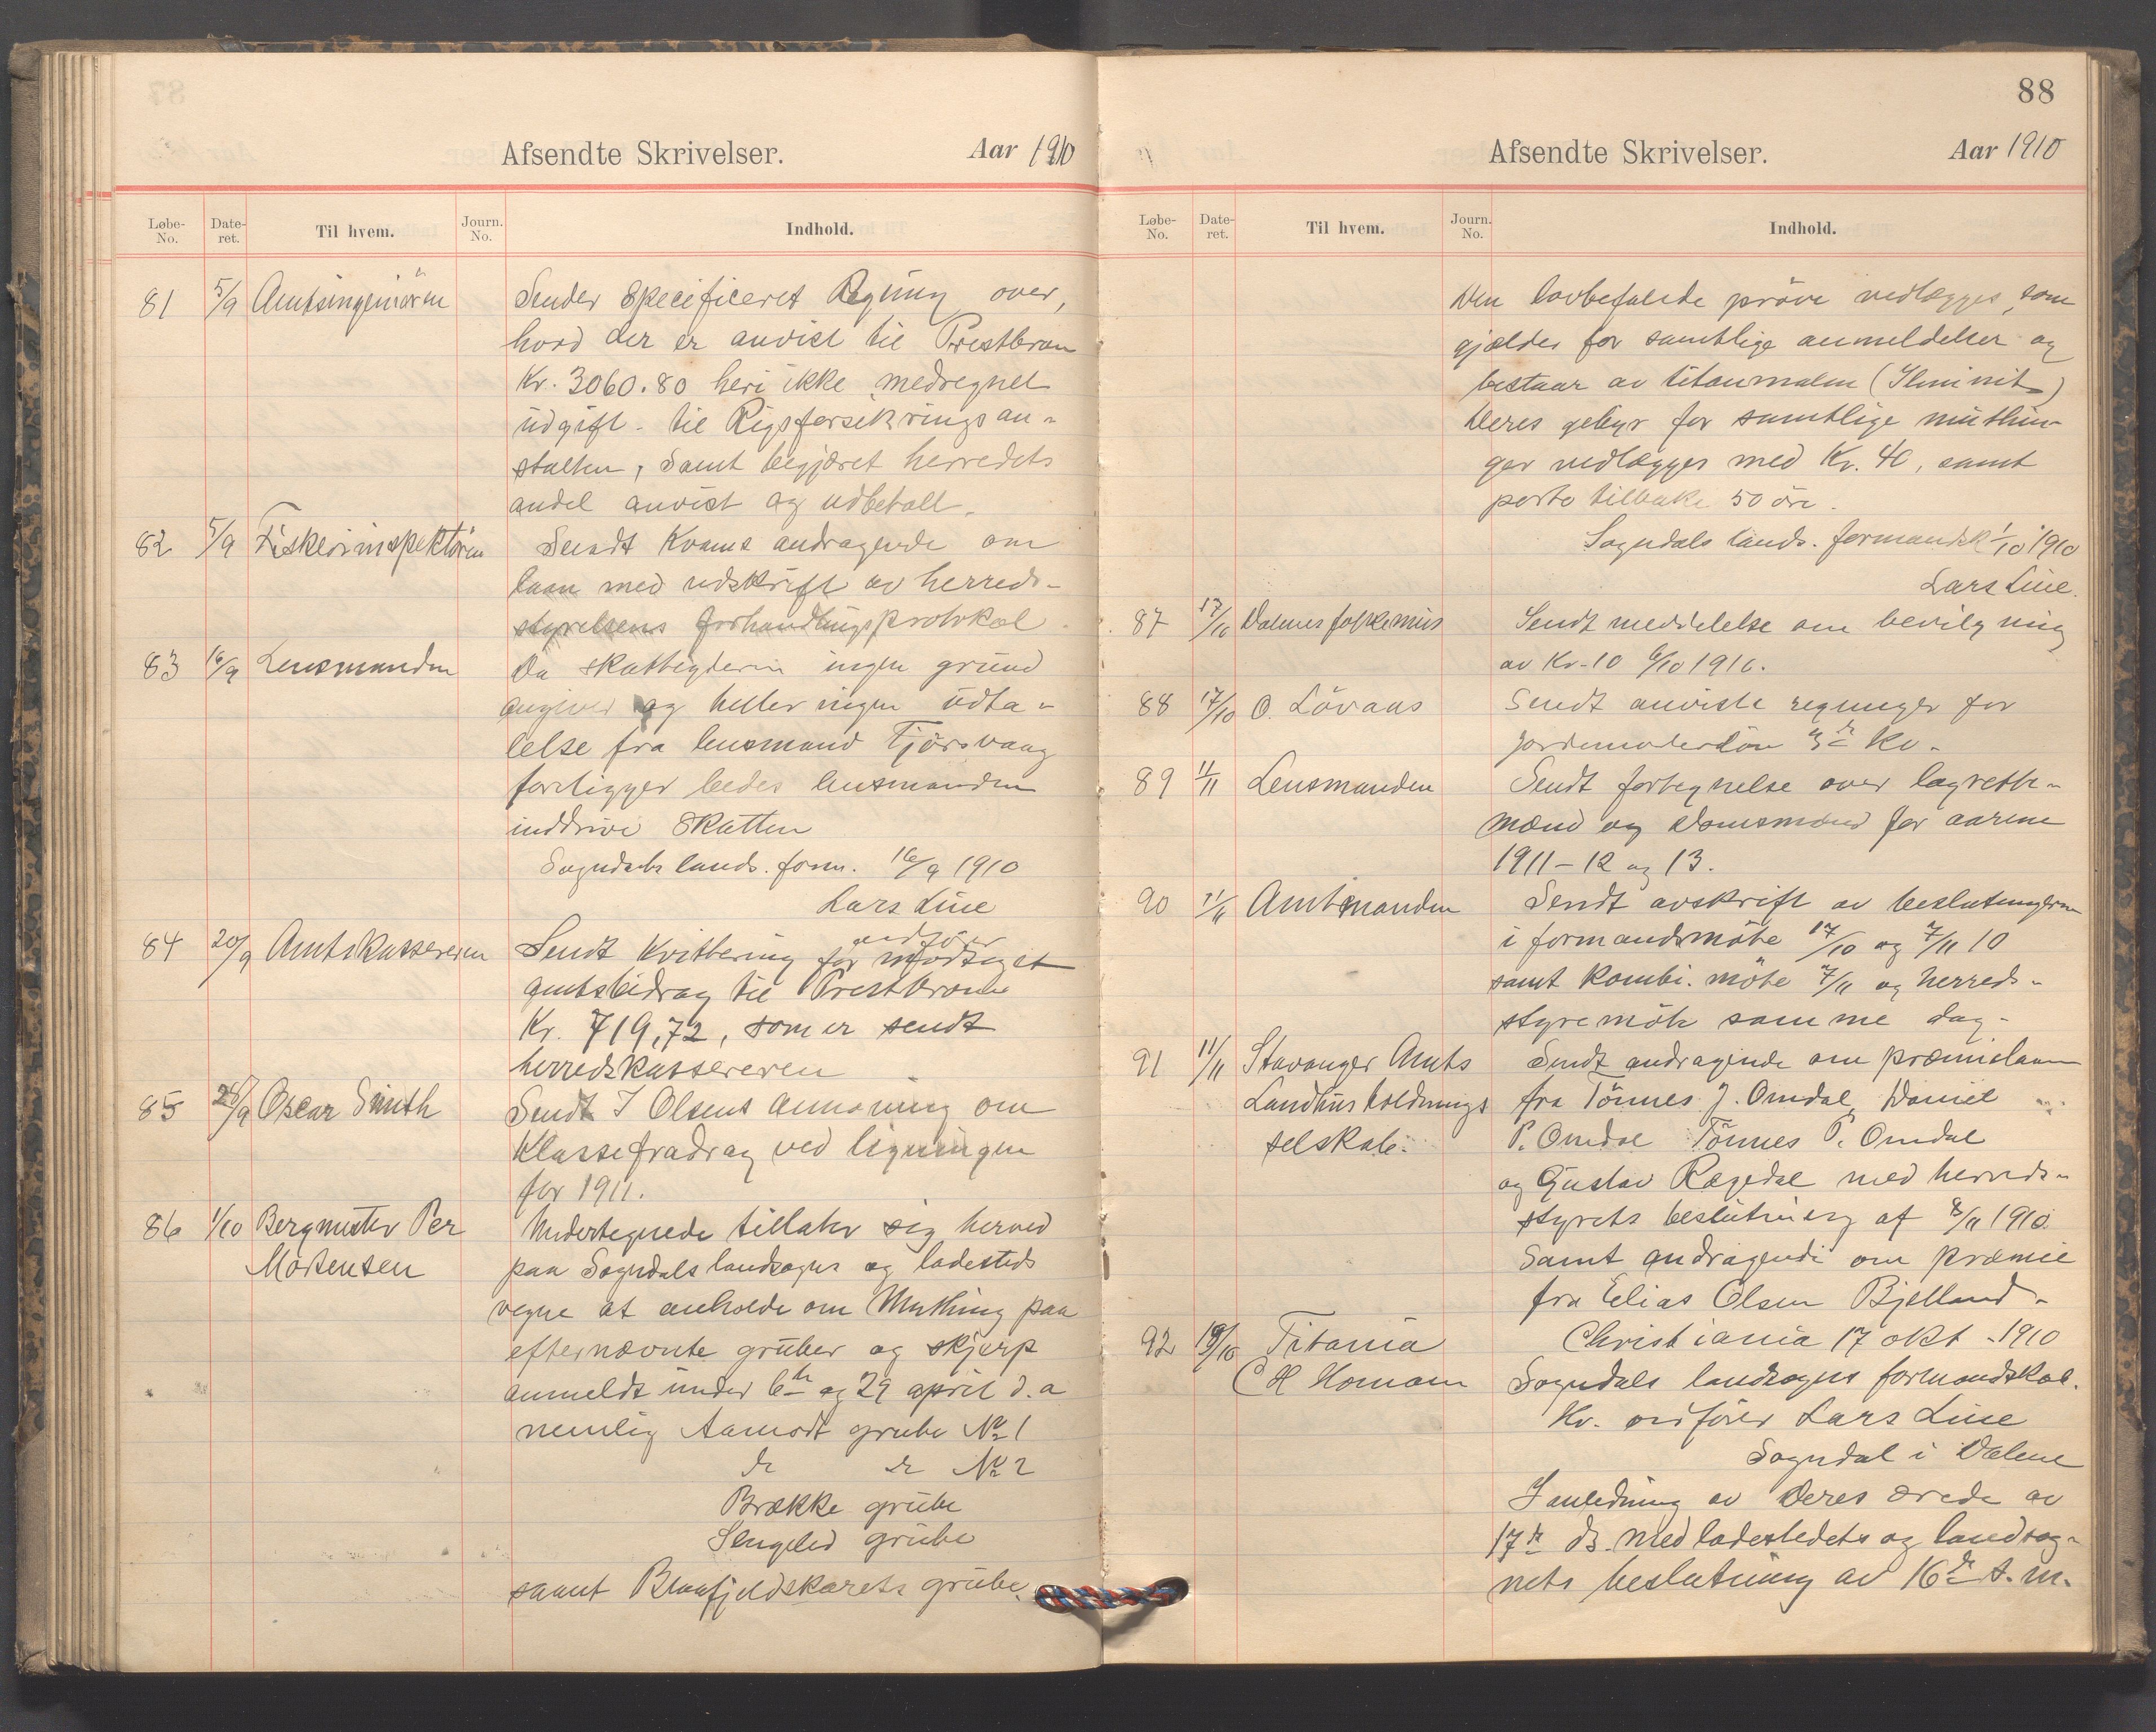 Afsendte Skrivelser. Aar 1910
Løbe-No. Date-ret. Til hvem. Journ. No. Indhold.
81 5/9 Amtsingeniören Sender Specificeret Regning over,
hvad der er anvist til Prestbroen
Kr. 3060.80 heri ikke medregnet
udgift - til Rigsforsikringsan-
stalten, Samt begjæret herredets
andel anvist og udbetalt.
82 5/9 Fiskeriinspektören Sendt Kvams andragende om
laan med udskrift av herreds-
styrelsens forhandlingsprotokol
83 16/9 Lensmanden Da skatteyderen ingen grund
angiver og heller ingen udta-
lelse fra lensmand Tjörsvaag
foreligger bedes lensmanden
inddrive Skatten
Sogndals lands. form. 16/9 1910
Lars Line
ordförer
84 20/9 Amtskassereren Sendt Kvittering for modtaget
amtsbidrag til Prestbroen
Kr. 719,72, som er sendt
herredskassereren
85 28/9 Oscar Smith Sendt I Olsens anmoning om
Klassefradrag ved ligningen
for 1911.
86 1/10 Bergmester Per Undertegnede tillater sig herved
Mortensen paa Sogndals landsogns og ladesteds
vegne at anholde om Muthing paa
efternævnte gruber og skjærp
anmeldt under 6te og 29 april d.a
nemlig Aamodt grube No 1
do do No 2
Brække grube
Slengelid grube
samt Blaafjeldskarets grube.
88
Afsendte Skrivelser. Aar 1910
Løbe-No. Date-ret. Til hvem. Journ. No. Indhold.
Den lovbefalede pröve vedlægges, som
gjælder for samtlige anmeldelser og
bestaar av titanmalm (Ilminit)
Deres gebyr for samtlige muthin-
ger vedlægges med Kr. 40, samt
porto tilbake 50 öre.
Sogndals lands. formandsk 1/10 1910
Lars Line.
87 17/10 Dalenes folkemus Sendt meddelelse om bevilgning
av Kr. 10 6/10 1910.
88 17/10 O. Lövaas Sendt anviste regninger for
jordemoderlön 3de Kv.
89 11/11 Lensmanden Sendt fortegnelse over lagrette-
mænd og Domsmænd for aarene
1911 - 12 og 13.
90 11/11 Amtmanden Sendt avskrift av beslutningerne
i formandsmöte 17/10 og 7/11 10
samt kombi. möte 7/11 og herreds-
styremöte samme dag.
91 11/11 Stavanger Amts Sendt andragende om præmielaan
Landhusholdnings fra Tönnes J. Omdal, Daniel
selskab. P. Omdal Tönnes P. Omdal
og Gustav Rægedal med herreds-
styrets beslutning af 8/11 1910.
Samt andragende om præmie
fra Elias Olsen Bjelland.
92 19/10 Titania Christiania 17 okt. 1910
C H Homan Sogndals landsogns formandskab.
Hr. ordförer Lars Line
Sogndal i Dalene
I anledning av Deres ærede av
17de ds. med ladestedets og landsog-
nets beslutning av 16de s.m.